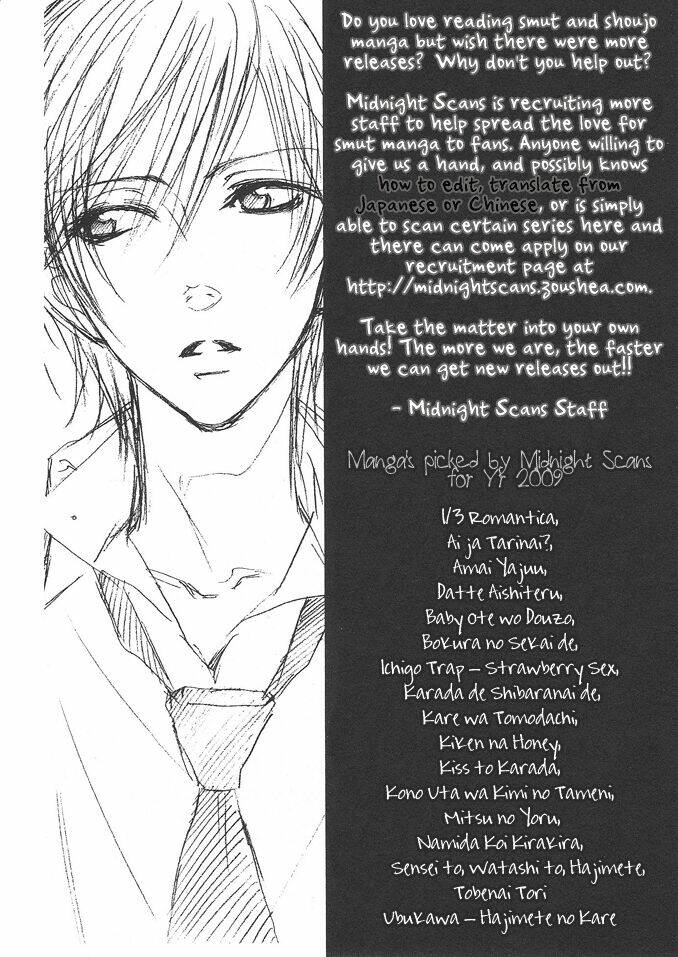 Do you love reading smut and shoujo
manga but wish there were more
releases? Why don't you help out?
Midnight Scans is recruiting more
staff to help spread the love for
smut manga to fans. Anyone willing to
give us a hand, and possibly knows
how to edit, translate from
Japanese or Chinese, or is simply
able to scan certain series here and
there can come apply on our
recruitment page at
http://midnightscans.zoushea.com.
Take the matter into your own
hands! The more we are, the faster
we can get new releases out!!
- Midnight Scans Staff
Manga's picked by Midnight Scans
for Yr 2009
1/3 Romantica,
Ai ja Tarinai?,
Amai Yajuu,
Datte Aishiteru,
Baby Ote wo Douzo,
Bokura no Sekai de,
Ichigo Trap – Strawberry Sex,
Karada de Shibaranai de,
Kare wa Tomodachi,
Kiken na Honey,
Kiss to Karada,
Kono Uta wa Kimi no Tameni,
Mitsu no Yoru,
Namida Koi Kirakira,
Sensei to, Watashi to, Hajimete,
Tobenai Tori
Ubukawa – Hajimete no Kare